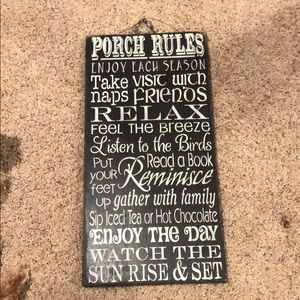 PORCH RULES
ENJOY EACH SEASON
Take naps VISIT WITH FRIENDS
RELAX
FEEL THE BREEZE
Listen to the Birds
PUT YOUR FEET UP Read a Book
Reminisce
gather with family
Sip Iced Tea or Hot Chocolate
ENJOY THE DAY
WATCH THE
SUN RISE & SET